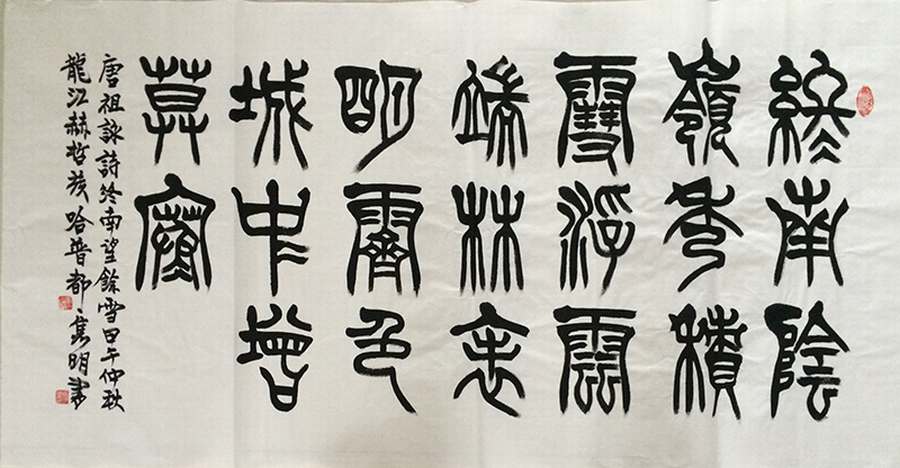 終南陰
嶺秀積
雪浮雲
端林表
明霽色
城中增
莫寒
唐祖詠詩终南望餘雪甲午仲秋
龍江赫哲族哈普都·雋明書